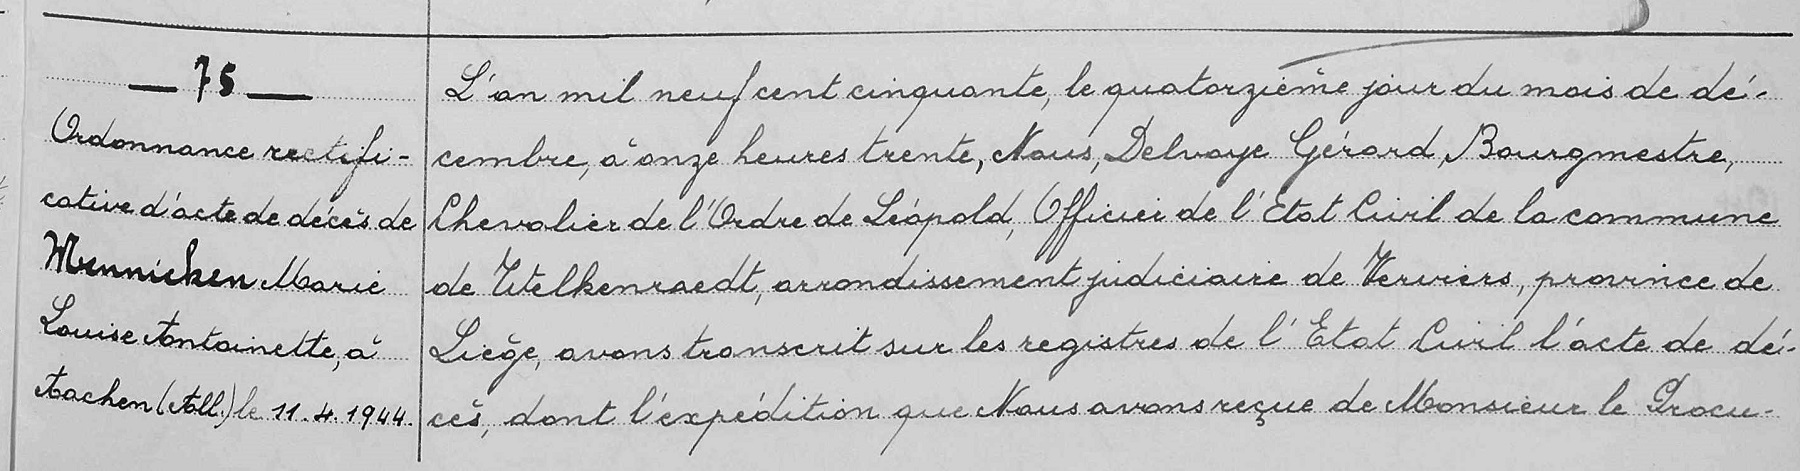 — 75 —
Ordonnance rectifi-
cative d'acte de décès de
Mennicken Marie
Louise Antoinette, à
Aachen (All.) le 11.4.1944.
L'an mil neuf cent cinquante, le quatorzième jour du mois de dé-
cembre, à onze heures trente, Nous, Delvoye Gérard, Bourgmestre,
Chevalier de l'Ordre de Léopold, Officier de l'Etat Civil de la commune
de Welkenraedt, arrondissement judiciaire de Verviers, province de
Liège, avons transcrit sur les registres de l'Etat Civil l'acte de dé-
cès, dont l'expédition que Nous avons reçue de Monsieur le Procu-